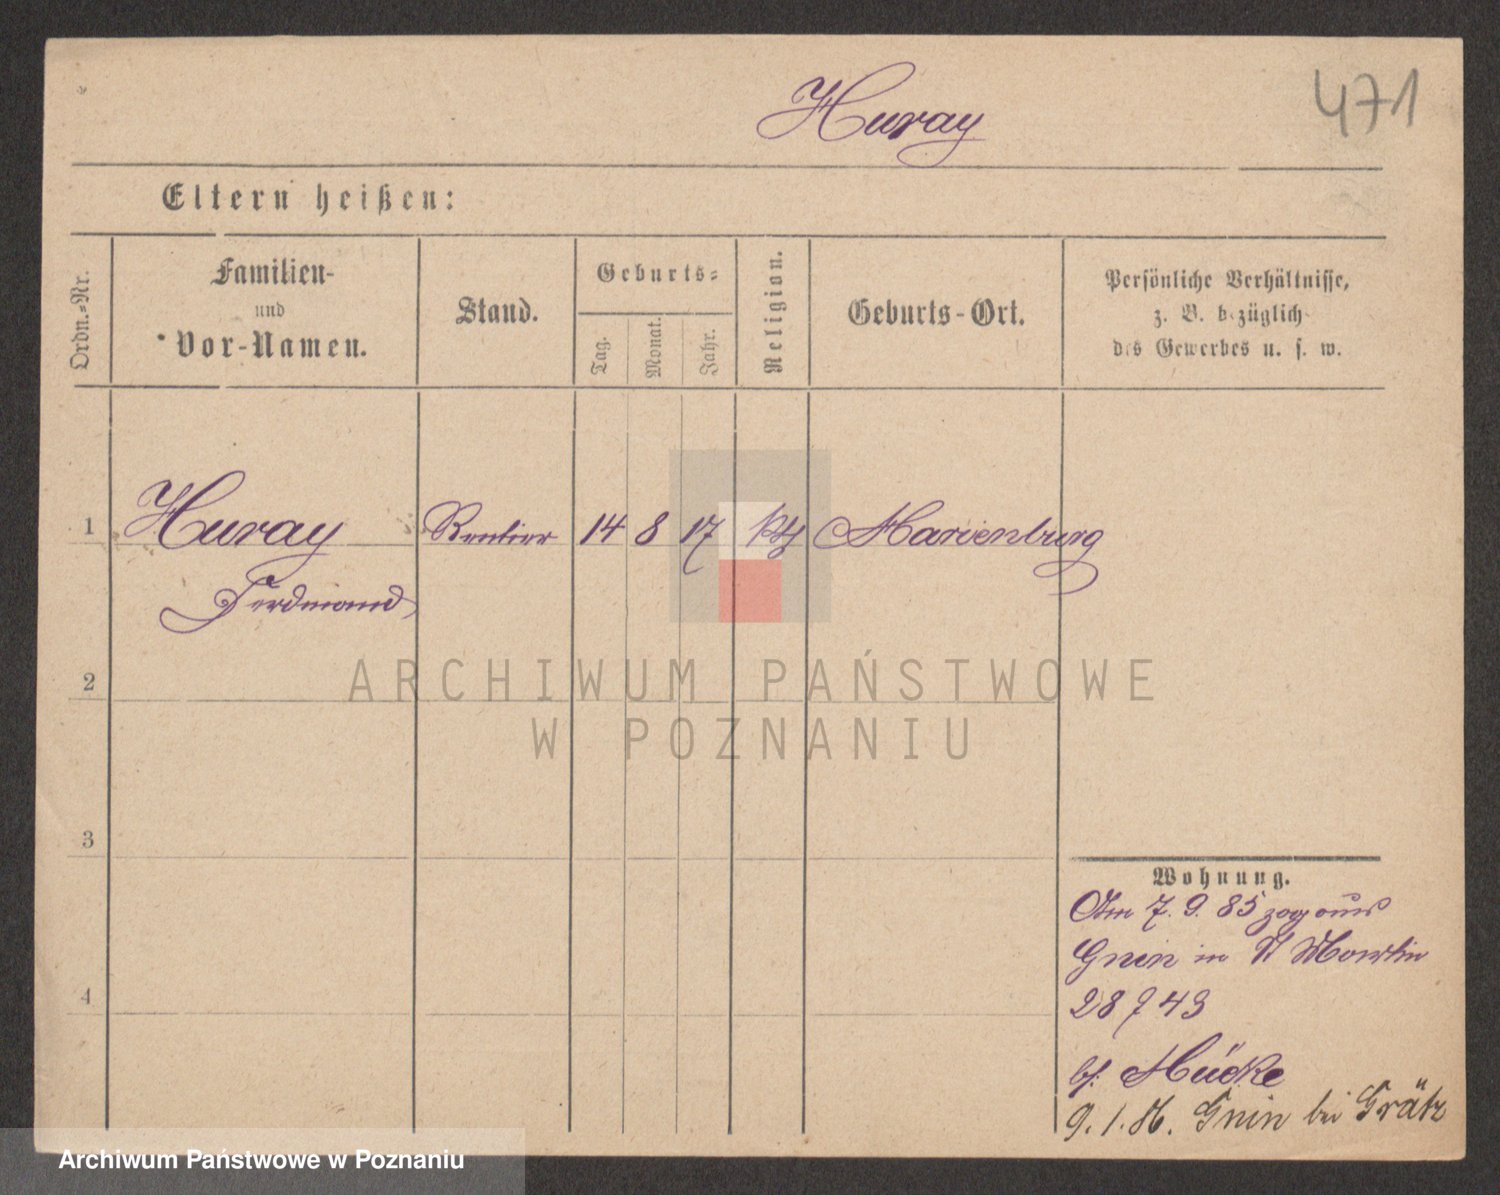 Huray
471
Eltern heißen:
Ordn.-Nr.
Familien-
und
Vor-Namen.
Stand.
Geburts-
Tag.
Monat.
Jahr.
Religion.
Geburts-Ort.
Persönliche Verhältnisse,
z. B. bezüglich
des Gewerbes u. s. w.
1 Huray Rentier 14 8 17 Marienburg
Ferdinand
2
3
4
Wohnung.
Am 7. 9. 85 zog aus
Gnin in St Martin
28
bei Mücke
9. 1. Gnin bei Grätz
ARCHIWUM PAŃSTWOWE
W POZNANIU
Archiwum Państwowe w Poznaniu